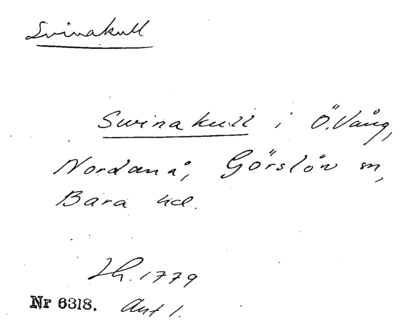 Svinakull
Swinakull i Ö. Vång,
Nordanå, Görslöv sn,
Bara hd.
Lh. 1779
Nr 6318. Akt 1.